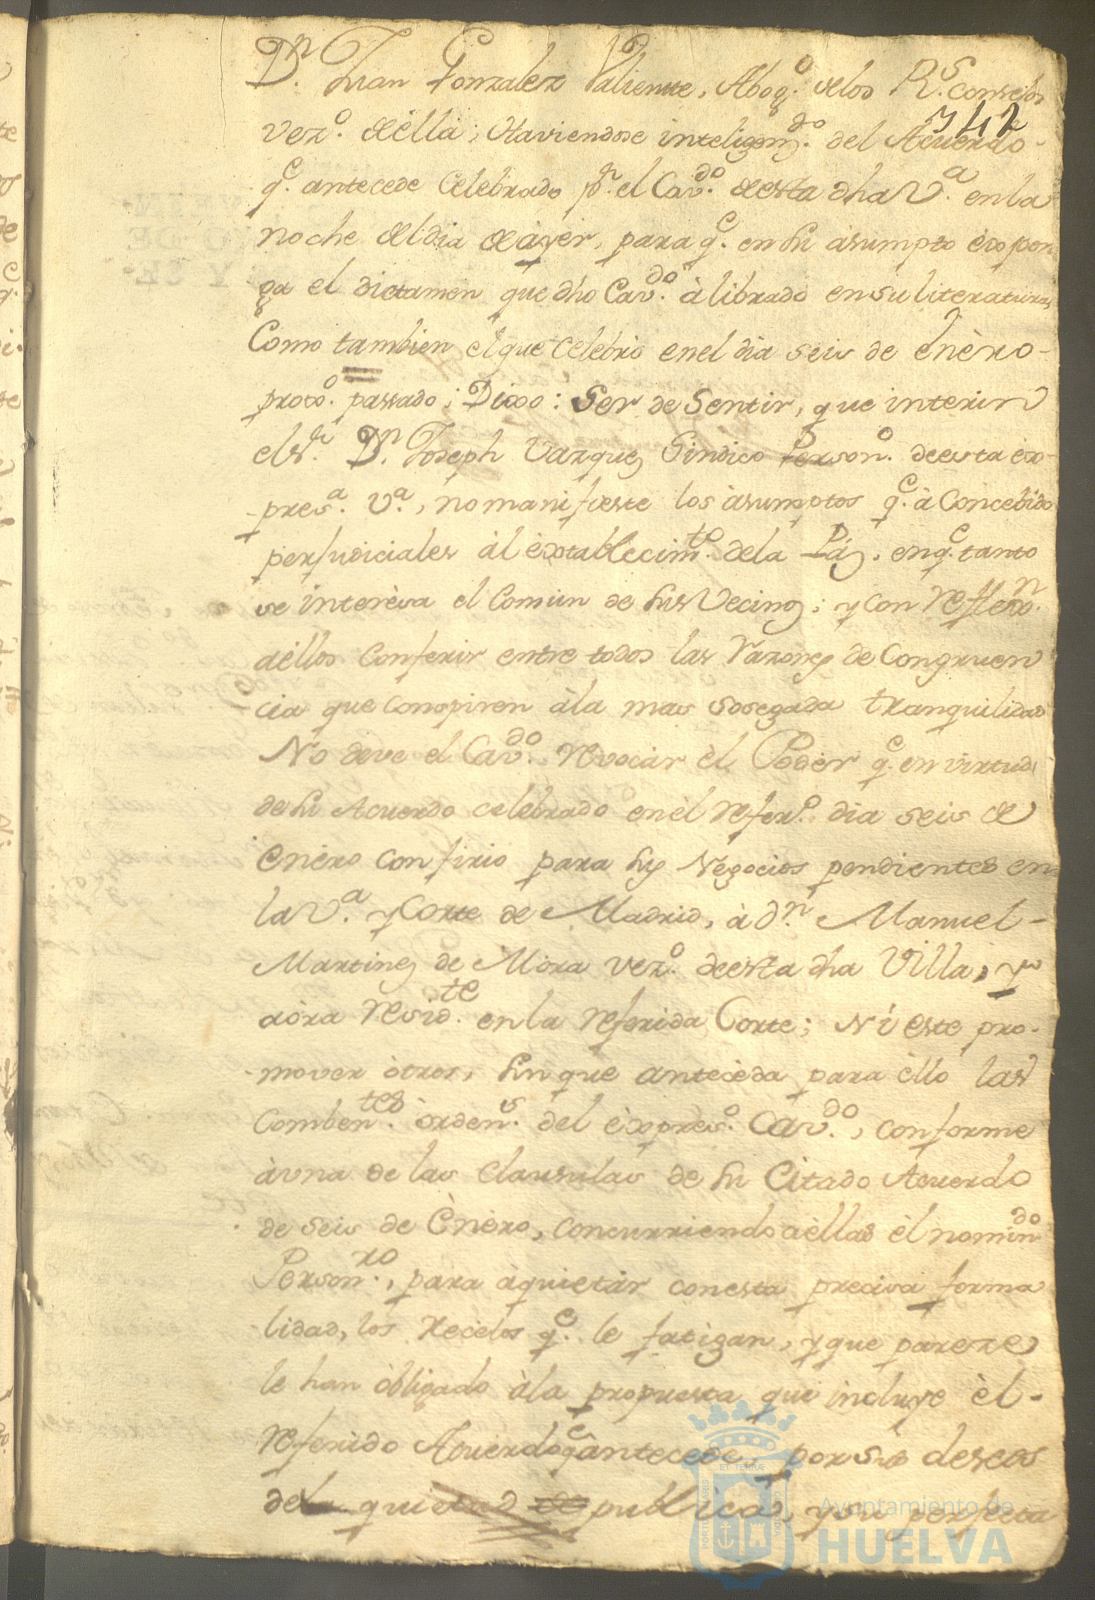 Dn. Juan Gonzalez Valiente, Abogo. de los Rs. consejos
342
vezo. de ella; Haviendose inteligenzdo. del Acuerdo
qe. antecede Celebrado pr. el Cavdo. de esta dha Va. en la
noche del dia de àyer, para qe. en su àsumpto èxpon
ga el dictamen que dho Cavdo. à librado en su literatura,
Como tambien el que Celebrò en el dia seis de Enèro
proxo. passado; Dixo: Ser de Sentir, que interin
el Sr. Dn. Joseph Vazquez Sindico Persono. de esta èx-
presa. Va., no manifieste los àsumptos qe. à Concebido
perjudiciales àl èxtablecimto. de la Paz, en qe. tanto
se interèsa el Comùn de sus Vecinos; y con reflexn.
aèllos Conferir entre todos las razones de Congruen
cia que conspiren àla mas sosegada tranquilidad
No deve el Cavdo. revocàr èl Podèr qe. en virtud
de su Acuerdo celebrado en èl refero. dia seis de
Enèro confirio para sus Negocios pendientes en
la Va. y Corte de Madrid, à dn. Manuel
Martinez de Mora vezo. de esta dha Villa, y
aòra residte. en la referida Corte; Ni èste pro-
mover òtros, sin que antecèda para èllo las
Combentes. òrdens. del èxpreso. Cavdo., conforme
àuna de las Clausulas de su Citado Acuerdo
de seis de Enèro, concurriendo aèllas èl nomindo
Personro., para àquietàr con esta preciva forma
lidad, los recelos qe. le fatigan, y que pareze
le han òbligado àla propuesta que incluye èl
referido Acuerdo qe antecede, por sus deseos
de la quietud publica, y su perfecta
Ayuntamiento de
HUELVA